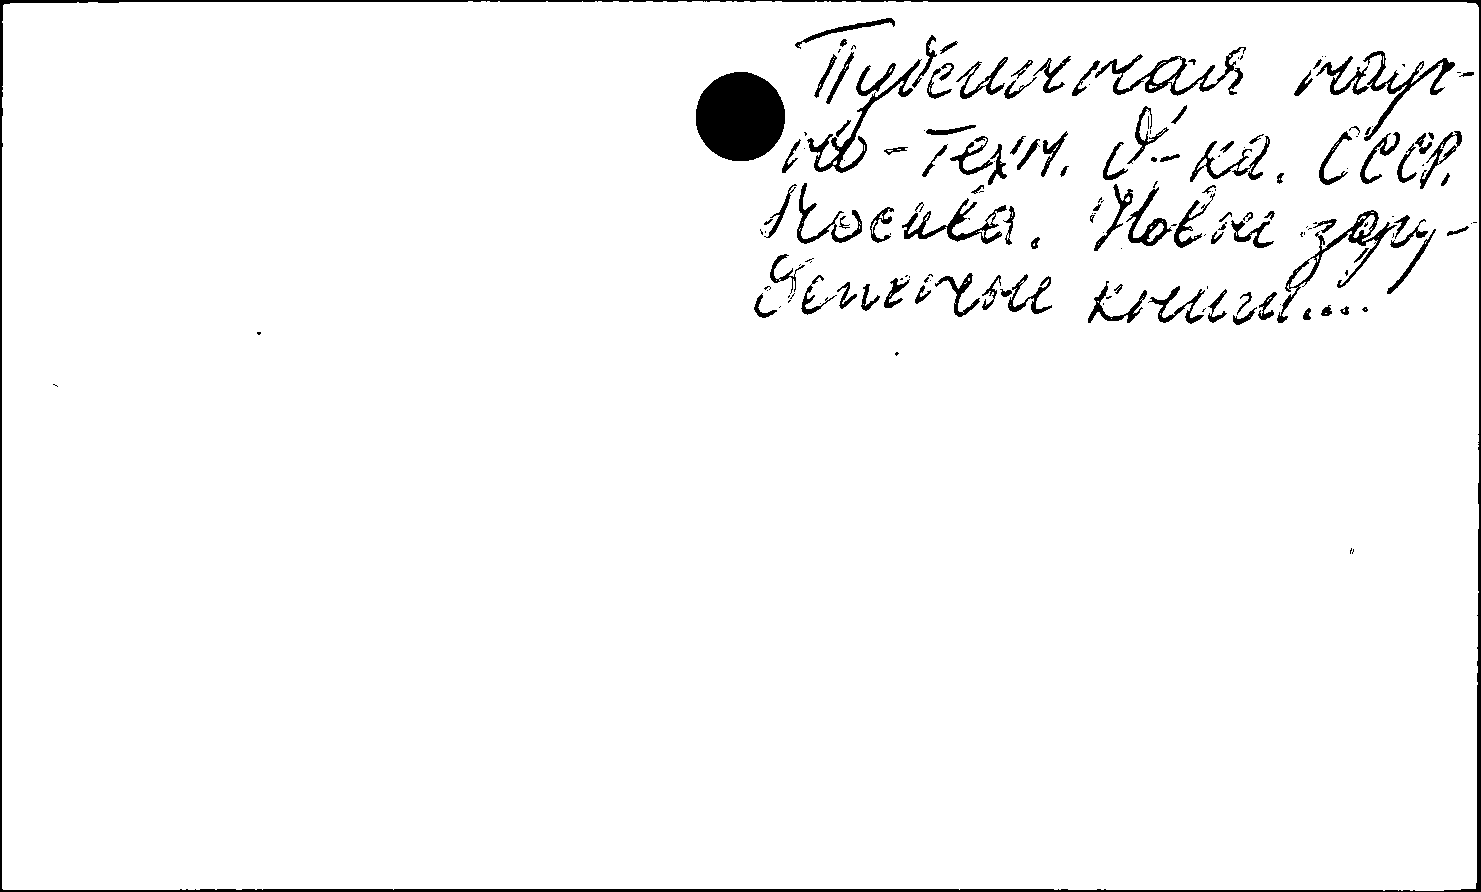 Публичная науч-
но-техн. б-ка. СССР.
Москва. Новые зару-
бежные книги....